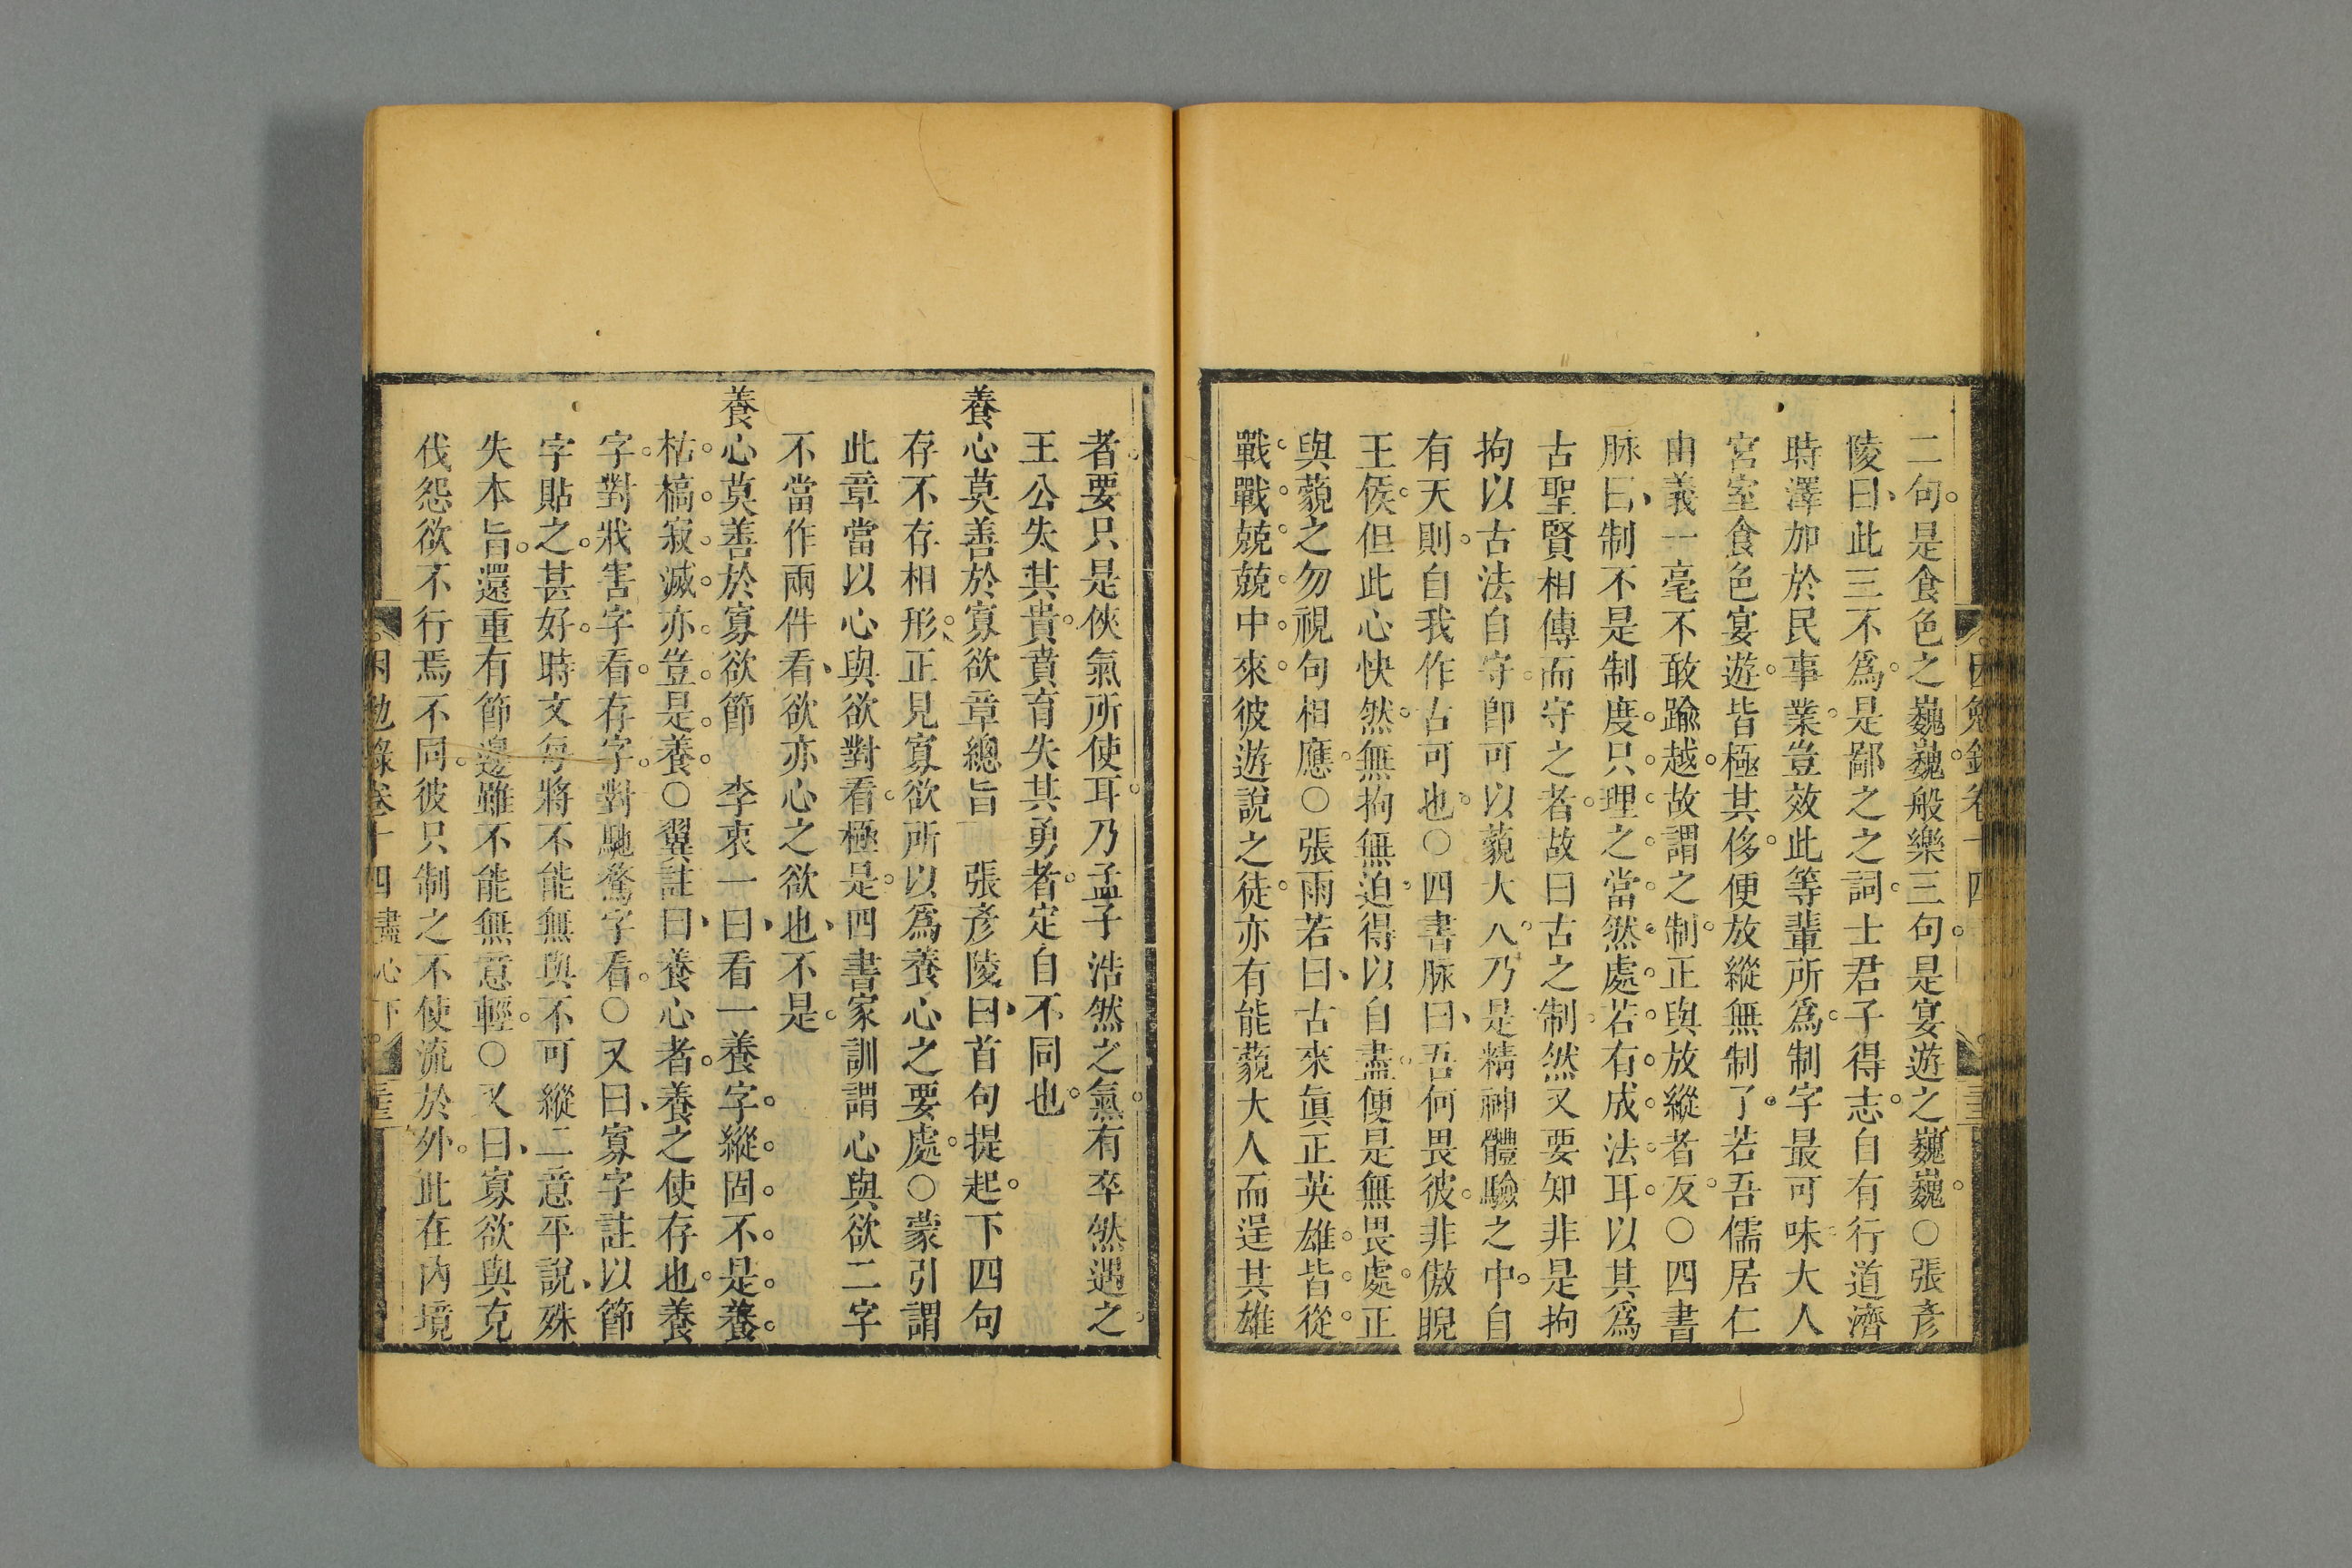 二句是食色之巍巍般樂三句是宴遊之巍巍○張彥
陵曰此三不爲是鄙之之詞士君子得志自有行道濟
時澤加於民事業豈效此等輩所爲制字最可味大人
宮室食色宴遊皆極其侈便放縱無制了若吾儒居仁
由義一毫不敢踰越故謂之制正與放縱者反○四書
脉曰制不是制度只理之當然處若有成法耳以其爲
古聖賢相傳而守之者故曰古之制然又要知非是拘
拘以古法自守卽可以藐大人乃是精神體驗之中自
有天則自我作古可也○四書脉曰吾何畏彼非傲睨
王侯但此心快然無拘無迫得以自盡便是無畏處正
與藐之勿視句相應○張雨若曰古來眞正英雄皆從
戰戰兢兢中來彼遊說之徒亦有能藐大人而逞其雄
者要只是俠氣所使耳乃孟子浩然之氣有卒然遇之
王公失其貴賁育失其勇者定自不同也
養心莫善於寡欲章總旨 張彥陵曰首句提起下四句
存不存相形正見寡欲所以爲養心之要處○蒙引謂
此章當以心與欲對看極是四書家訓謂心與欲二字
不當作兩件看欲亦心之欲也不是
養心莫善於寡欲節 李衷一曰看一養字縱固不是養
枯槁寂滅亦豈是養○翼註曰養心者養之使存也養
字對戕害字看存字對馳騖字看○又曰寡字註以節
字貼之甚好時文每將不能無與不可縱二意平說殊
失本旨還重有節邊雖不能無意輕○又曰寡欲與克
伐怨欲不行焉不同彼只制之不使流於外此在內境
困勉錄卷十四 盡心下